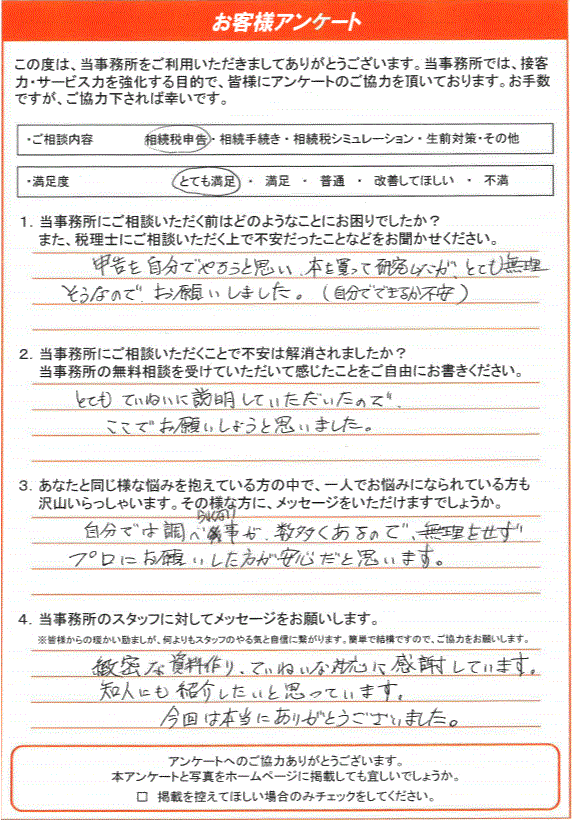 お客様アンケート
この度は、当事務所をご利用いただきましてありがとうございます。当事務所では、接客
力・サービス力を強化する目的で、皆様にアンケートのご協力を頂いております。お手数
ですが、ご協力下されば幸いです。
・ご相談内容 相続税申告・相続手続き・相続税シミュレーション・生前対策・その他
・満足度 とても満足 ・ 満足 ・ 普通 ・ 改善してほしい ・ 不満
1. 当事務所にご相談いただく前はどのようなことにお困りでしたか？
また、税理士にご相談いただく上で不安だったことなどをお聞かせください。
申告を自分でやろうと思い、本を買って研究したが、とても無理
そうなので、お願いしました。（自分でできるか不安）
2. 当事務所にご相談いただくことで不安は解消されましたか？
当事務所の無料相談を受けていただいて感じたことをご自由にお書きください。
とてもていねいに説明していただいたので、
ここでお願いしようと思いました。
3. あなたと同じ様な悩みを抱えている方の中で、一人でお悩みになられている方も
沢山いらっしゃいます。その様な方に、メッセージをいただけますでしょうか。
自分では調べ事が、数多くあるので、無理をせず
プロにお願いした方が安心だと思います。
4. 当事務所のスタッフに対してメッセージをお願いします。
※皆様からの暖かい励ましが、何よりもスタッフのやる気と自信に繋がります。簡単で結構ですので、ご協力をお願いします。
緻密な資料作り、ていねいな対応に感謝しています。
知人にも紹介したいと思っています。
今回は本当にありがとうございました。
アンケートへのご協力ありがとうございます。
本アンケートと写真をホームページに掲載しても宜しいでしょうか。
□ 掲載を控えてほしい場合のみチェックをしてください。